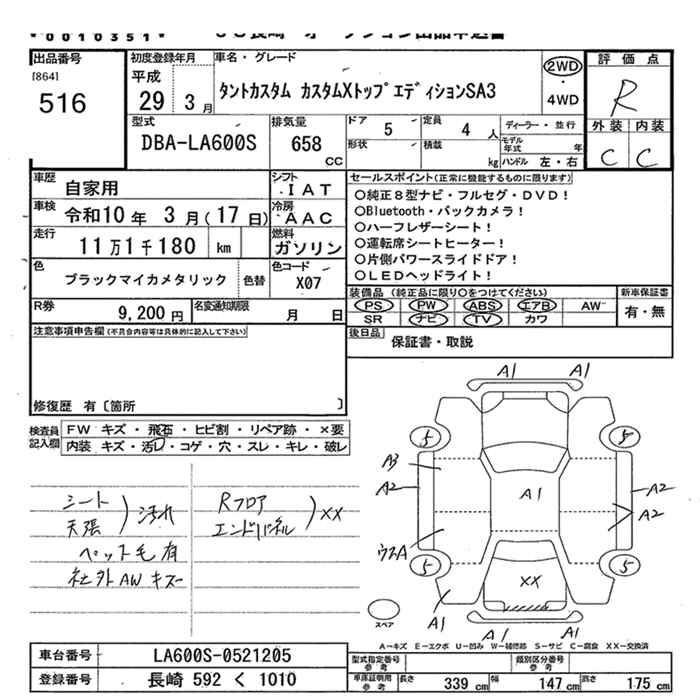 0010351
出品番号
[864]
516
初度登録年月
平成
29 3 月
車名・グレード
タントカスタム カスタムXトップエディションSA3
2WD
・
4WD
評価点
R
外装 内装
C C
型式
DBA-LA600S
排気量
658
CC
ドア
5
形状
定員
4 人
積載
kg
ディーラー・並行
モデル年式 年
ハンドル 左・右
車歴
自家用
シフト
IAT
車検
令和10年 3月(17日)
冷房
AAC
走行
11万1千180 km
燃料
ガソリン
色
ブラックマイカメタリック
色替
色コード
X07
R券
9,200 円
名変通知期限
月 日
セールスポイント(正常に機能するものに限ります)
○純正8型ナビ・フルセグ・DVD!
○Bluetooth・バックカメラ!
○ハーフレザーシート!
○運転席シートヒーター!
○片側パワースライドドア!
○LEDヘッドライト!
装備品(純正品に限り○をつけてください)
PS PW ABS エアB AW
SR ナビ TV カワ
新車保証書
有・無
後日品
保証書・取説
注意事項申告欄(不具合内容等は具体的に記入して下さい)
修復歴 有〔箇所 〕
検査員記入欄
FW キズ・飛石・ヒビ割・リペア跡・×要
内装 キズ・汚レ・コゲ・穴・スレ・キレ・破レ
シート
天張 )汚れ
ペット毛有
社外AWキズ
Rフロア
エンドパネル )XX
A1 A1
5 5
A3
A2
A1
A2
A2
5 5
XX
A1
A1
A1 A1
スペア
A-キズ E-エクボ U-凹み W-補修跡 S-サビ C-腐食 XX-交換済
車台番号
LA600S-0521205
登録番号
長崎 592 く 1010
型式指定番号
参考
類別区分番号
参考
車庫証明用
参考
長さ
339 cm
幅
147 cm
高さ
175 cm